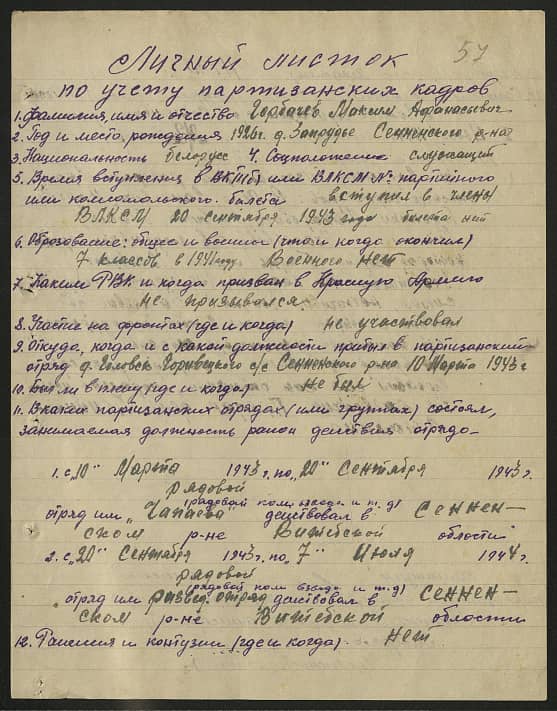 57
Личный листок
по учету партизанских кадров
1. Фамилия, имя и отчество Горбачев Максим Афанасьевич
2. Год и место рождения 1926 г. д. Запрудье Сенненского р-на
3. Национальность белорусс 4. Соцположение служащий
5. Время вступления в ВКП(б) или ВЛКСМ № партийного
или комсомольского билета вступил в члены
ВЛКСМ 20 сентября 1943 года билета нет
6. Образование: общее и военное (что и когда окончил)
7 классов в 1941 году Военного нет
7. Каким РВК и когда призван в Красную Армию
не призывался
8. Участие на фронтах (где и когда) не участвовал
9. Откуда, когда и с какой должности прибыл в партизанский
отряд д. с/с Сенненского р-на 10 Марта 1943 г
10. Был ли в плену (где и когда) не был
11. В каких партизанских отрядах (или группах) состоял,
занимаемая должность район действия отряда
1. с „10" Марта 1943 г. по „20" Сентября 1943 г.
рядовой
(рядовой ком. взвода и т. д)
отряд им „Чапаева" действовал в Сеннен-
ском р-не Витебской области
2. с „20" Сентября 1943 г. по „7" Июля 1944 г.
рядовой
(рядовой ком взвода и т. д)
отряд им развед. отряд действовал в Сеннен-
ском р-не Витебской области
12. Ранения и контузии (где и когда) нет